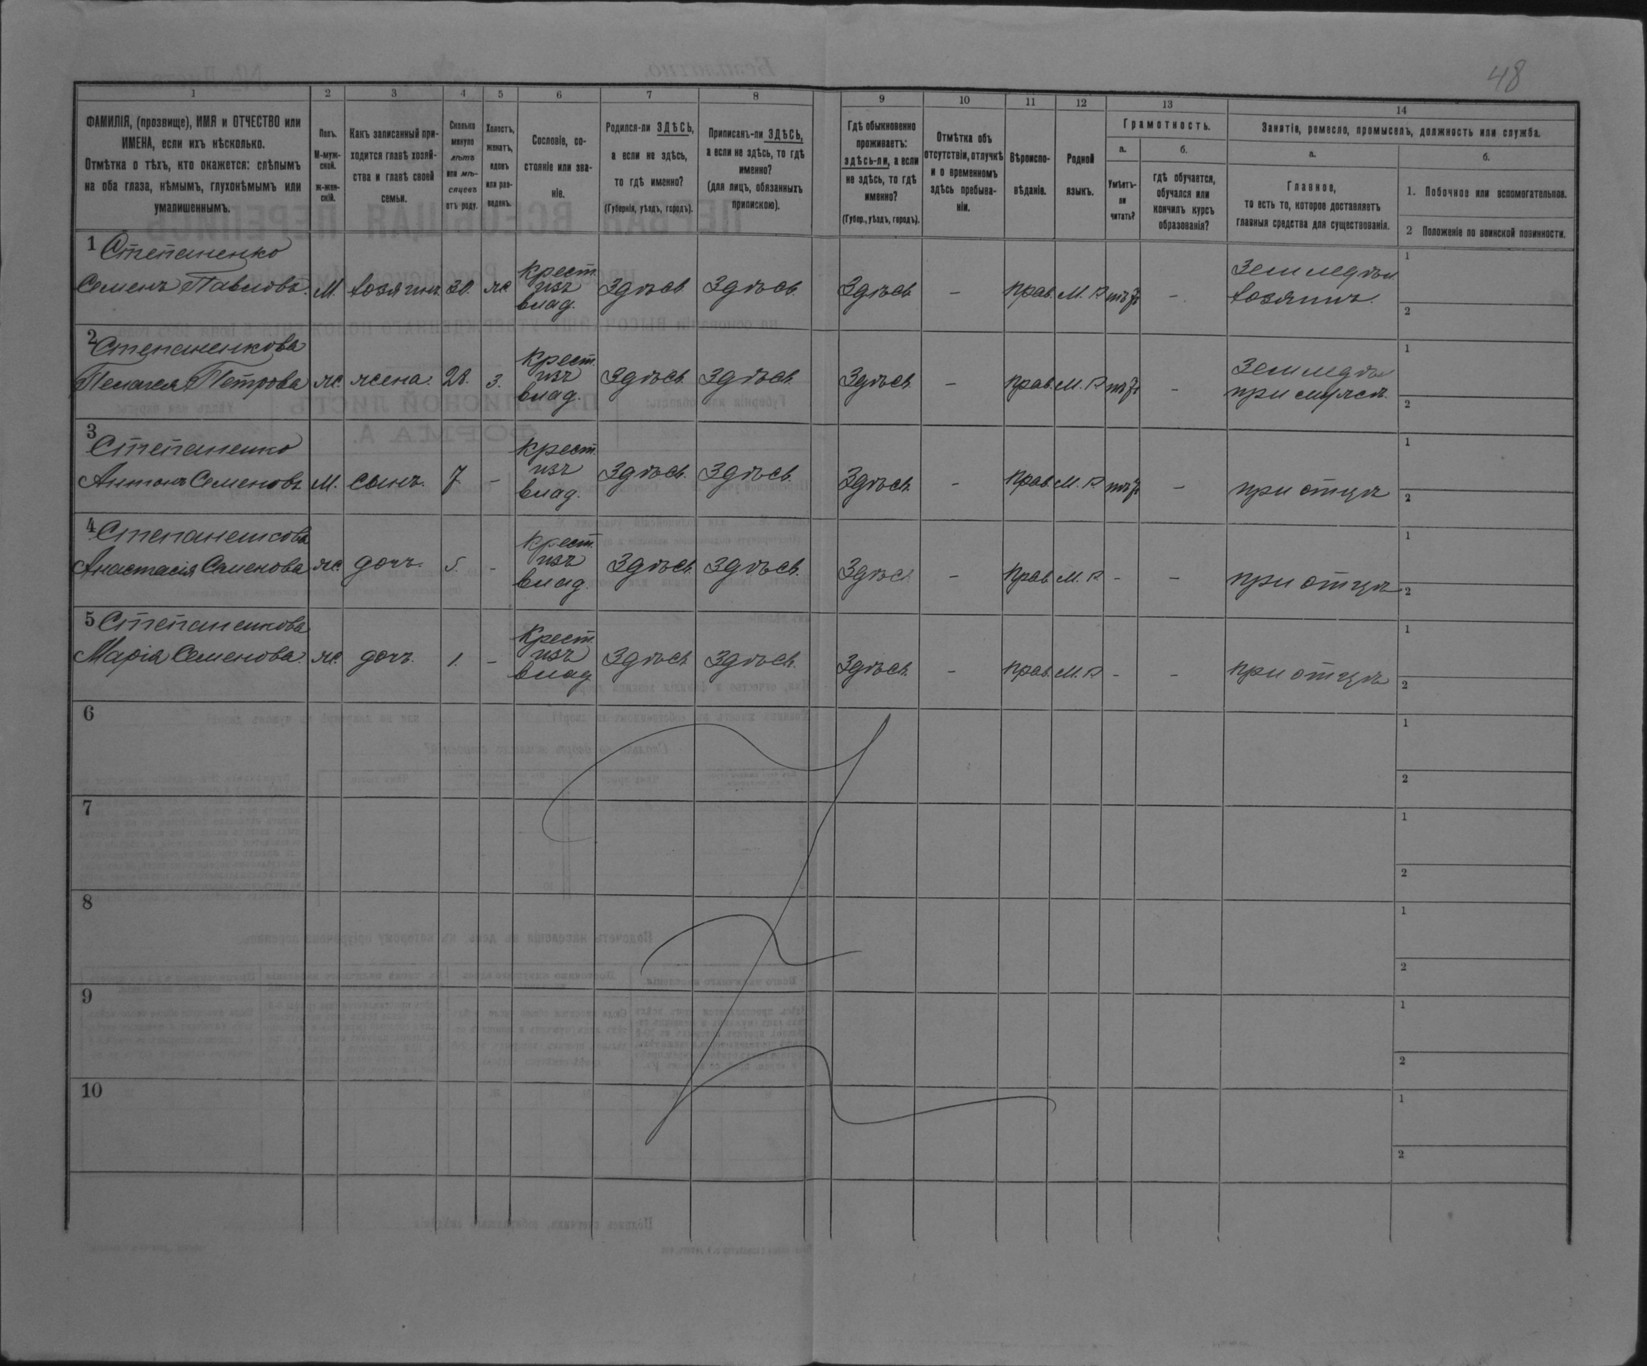 48
1
2
3
4
5
6
7
8
9
10
11
12
13
14
ФАМИЛІЯ, (прозвище), ИМЯ и ОТЧЕСТВО или
ИМЕНА, если ихъ нѣсколько.
Отмѣтка о тѣхъ, кто окажется: слѣпымъ
на оба глаза, нѣмымъ, глухонѣмымъ или
умалишеннымъ.
Полъ.
М-муж-
ской.
ж-жен-
скій.
Какъ записанный при-
ходится главѣ хозяй-
ства и главѣ своей
семьи.
Сколько
минуло
лѣтъ
или мѣ-
сяцевъ
отъ роду.
Холостъ,
женатъ,
вдовъ
или раз-
веденъ.
Сословіе, со-
стояніе или зва-
ніе.
Родился-ли ЗДѢСЬ,
а если не здѣсь,
то гдѣ именно?
(Губернія, уѣздъ, городъ).
Приписанъ-ли ЗДѢСЬ,
а если не здѣсь, то гдѣ
именно?
(для лицъ, обязанныхъ
припискою).
Гдѣ обыкновенно
проживаетъ:
здѣсь-ли, а если
не здѣсь, то гдѣ
именно?
(Губер., уѣздъ, городъ).
Отмѣтка объ
отсутствіи, отлучкѣ
и о временномъ
здѣсь пребыва-
ніи.
Вѣроиспо-
вѣданіе.
Родной
языкъ.
Грамотность.
а.
Умѣетъ-
ли
читать?
б.
гдѣ обучается,
обучался или
кончилъ курсъ
образованія?
Занятіе, ремесло, промыселъ, должность или служба.
а.
Главное,
то есть то, которое доставляетъ
главныя средства для существованія.
б.
1. Побочное или вспомогательное.
2 Положеніе по воинской повинности.
1 Степаненко
Семенъ Павловъ. М. хозяинъ. 30. ж. Крест. изъ влад. Здѣсь Здѣсь. Здѣсь - прав. М. Р. - Земледѣл. хозяинъ.
1
2
2 Степаненкова
Пелагея Петрова ж. жена. 28. з. Крест. изъ влад. Здѣсь Здѣсь Здѣсь - прав. М. Р. - Земледѣл при мужѣ.
1
2
3 Степаненко
Антонъ Семеновъ М. сынъ. 7 - Крест. изъ влад. Здѣсь Здѣсь. Здѣсь - прав. М. Р. - при отцѣ
1
2
4 Степаненкова
Анастасія Семенова ж. дочь. 5. - Крест. изъ влад. Здѣсь Здѣсь. Здѣсь - прав. М. Р. - - при отцѣ
1
2
5 Степаненкова
Марія Семенова. ж. дочь. 1. - Крест. изъ влад Здѣсь Здѣсь. Здѣсь - прав. М. Р. - - при отцѣ
1
2
6
1
2
7
1
2
8
1
2
9
1
2
10
1
2